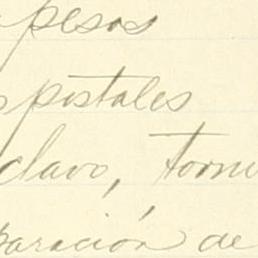 pesos
postales
clavo, torni
paración de